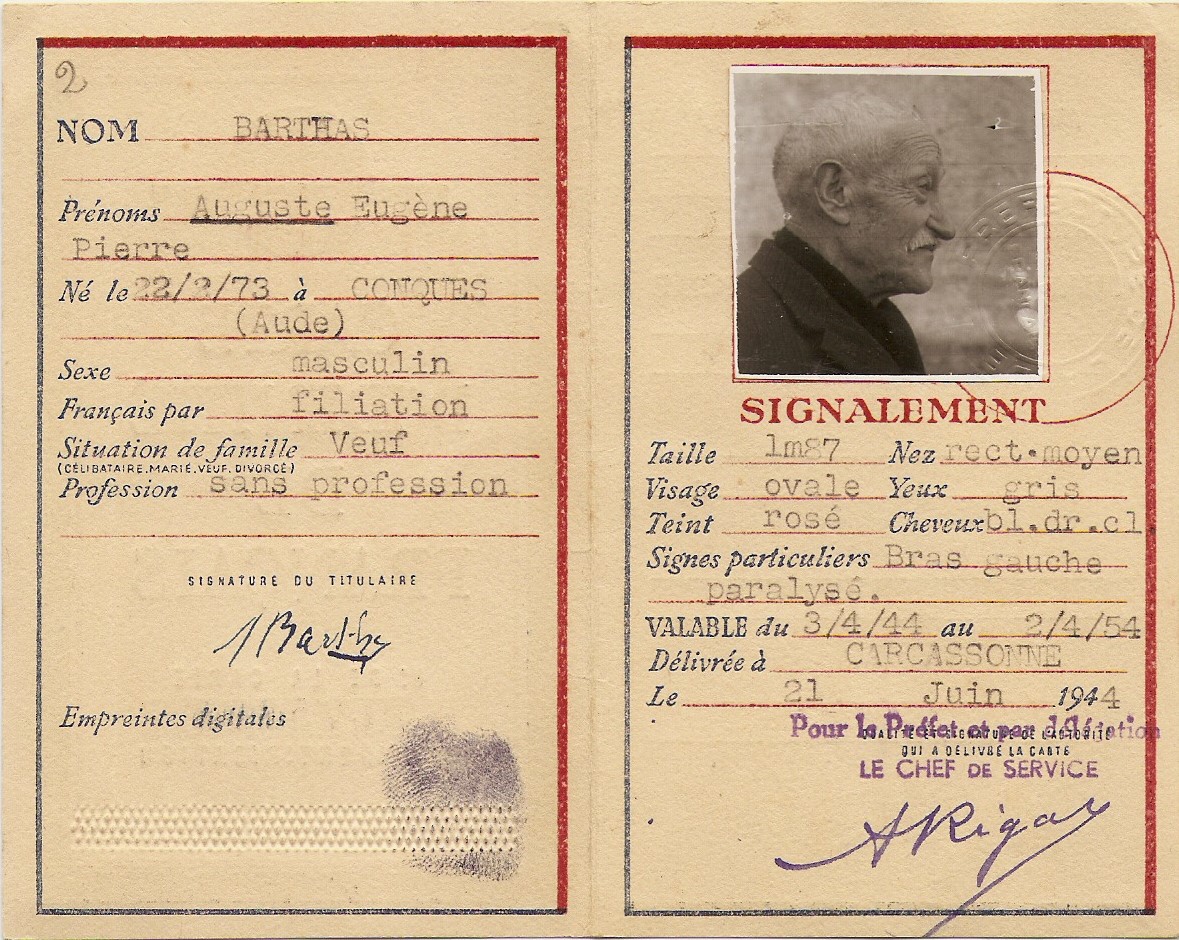 2
NOM BARTHAS
Prénoms Auguste Eugène
Pierre
Né le 22/2/73 à CONQUES
(Aude)
Sexe masculin
Français par filiation
Situation de famille Veuf
(CÉLIBATAIRE.MARIÉ.VEUF.DIVORCÉ)
Profession sans profession
SIGNATURE DU TITULAIRE
ABarthas
Empreintes digitales
SIGNALEMENT
Taille 1m87 Nez rect.moyen
Visage ovale Yeux gris
Teint rosé Cheveux bl.dr.cl.
Signes particuliers Bras gauche
paralysé.
VALABLE du 3/4/44 au 2/4/54
Délivrée à CARCASSONNE
Le 21 Juin 1944
Pour le Préfet et par délégation
QUALITÉ ET SIGNATURE DE L'AUTORITÉ
QUI A DÉLIVRÉ LA CARTE
LE CHEF DE SERVICE